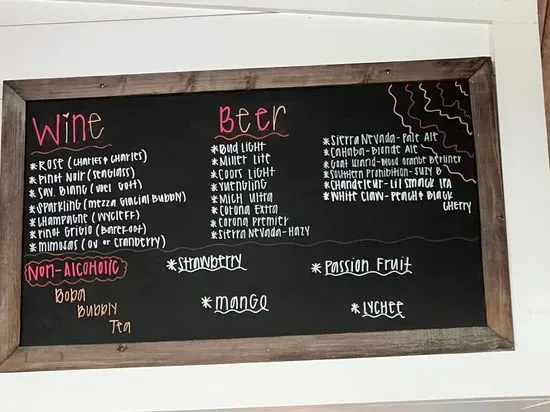 Wine
*Rose (Charles & Charles)
*Pinot Noir (Seaglass)
*Sav. Blanc (Vue! Gott)
*Sparkling (Mezza Glacial Bubbly)
*Champagne (Wycleff)
*Pinot Grigio (Barefoot)
*Mimosas (OJ or Cranberry)
Beer
*Bud Light
*Miller Lite
*Coors Light
*Yuengling
*Mich Ultra
*Corona Extra
*Corona Premier
*Sierra Nevada-Hazy
*Sierra Nevada-Pale Ale
*Cahaba-Blonde Ale
*Goat Island-Blood Orange Berliner
*Southern Prohibition-Suzy B
*Chandeleur-Lil Smack IPA
*White Claw-Peach & Black
Cherry
Non-Alcoholic
Boba
Bubbly
Tea
*Strawberry
*Mango
*Passion Fruit
*Lychee